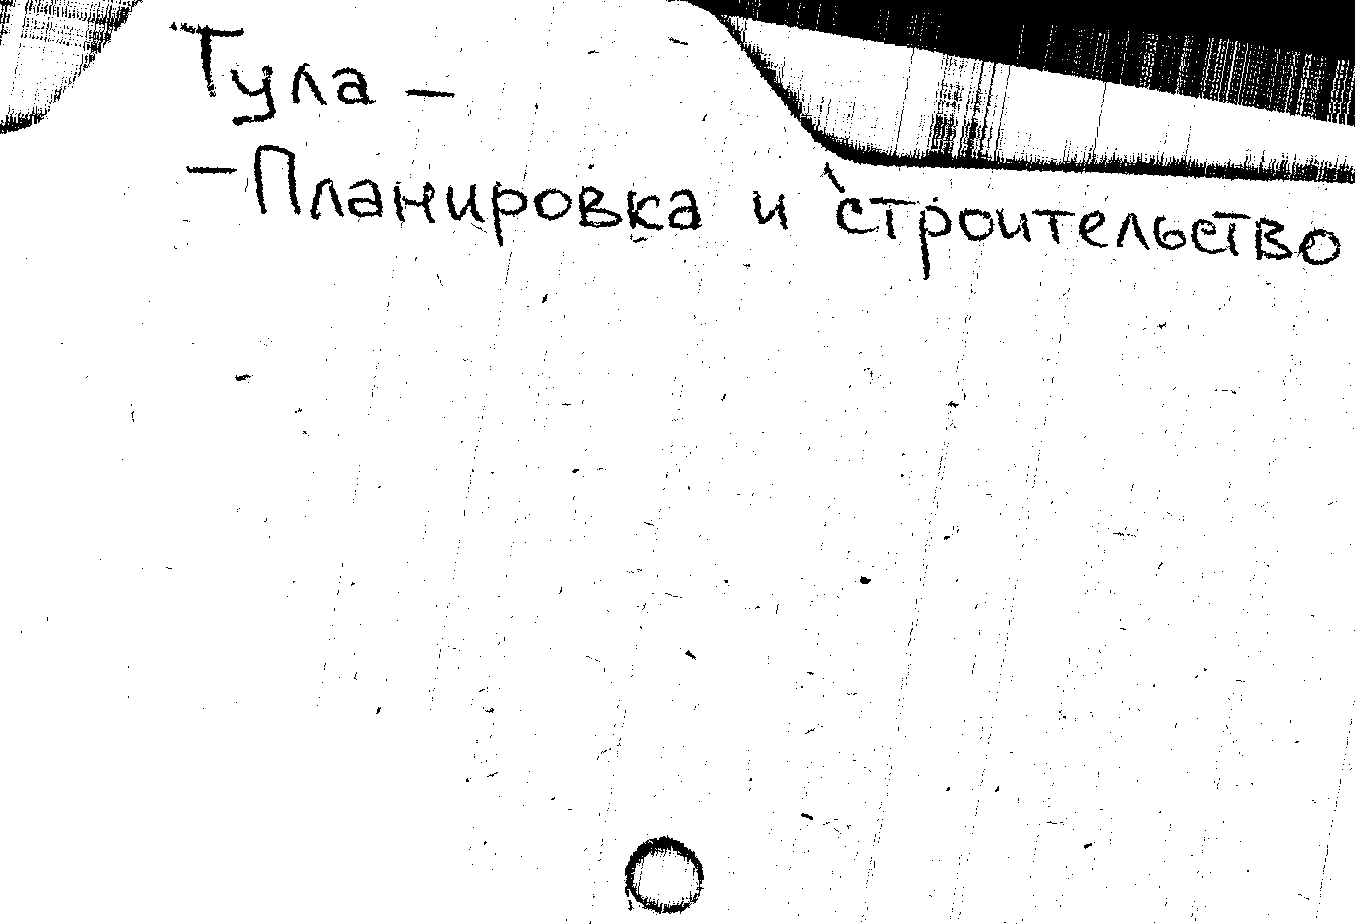 Тула —
— Планировка и строительство